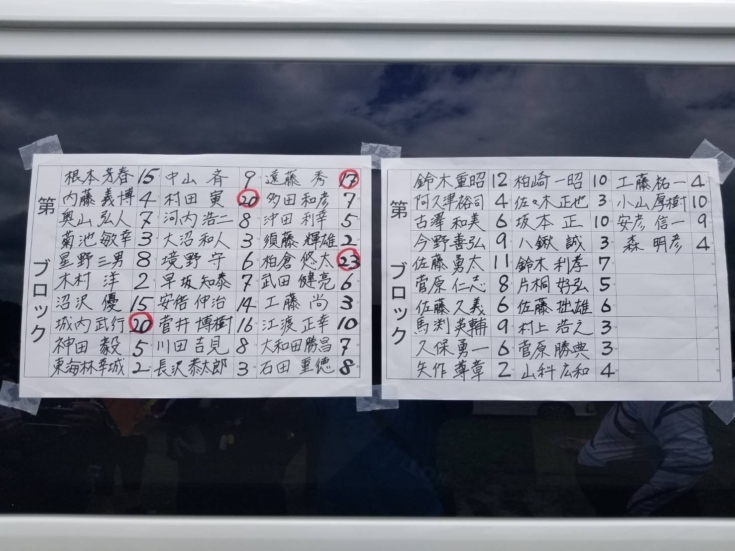 第 ブロック
根本芳春 15 中山 斉 9 遠藤 秀 17
内藤義博 4 村田 実 20 多田和彦 7
奥山弘人 7 河内浩二 8 沖田利幸 5
菊池敏幸 3 大沼和人 3 須藤輝雄 2
星野三男 8 境野 守 6 柏倉悠太 23
木村 洋 2 早坂知泰 7 武田健亮 6
沼沢 優 15 安倍伸治 14 工藤 尚 3
城内武行 20 菅井博樹 16 江波正幸 10
神田 毅 5 川田吉見 8 大和田勝昌 7
東海林幸城 2 長沢恭太郎 3 石田重徳 8
第 ブロック
鈴木重昭 12 柏崎一昭 10 工藤祐一 4
阿久津裕司 4 佐々木正也 3 小山厚樹 10
古澤和美 6 坂本 正 10 安彦信一 9
今野善弘 9 八鍬 誠 3 森 明彦 4
佐藤勇太 11 鈴木利孝 7
菅原仁志 8 片桐好弘 5
佐藤久義 6 佐藤 雄 6
馬渕英輔 9 村上浩之 3
久保勇一 6 菅原勝典 3
矢作尊章 2 山科広和 4